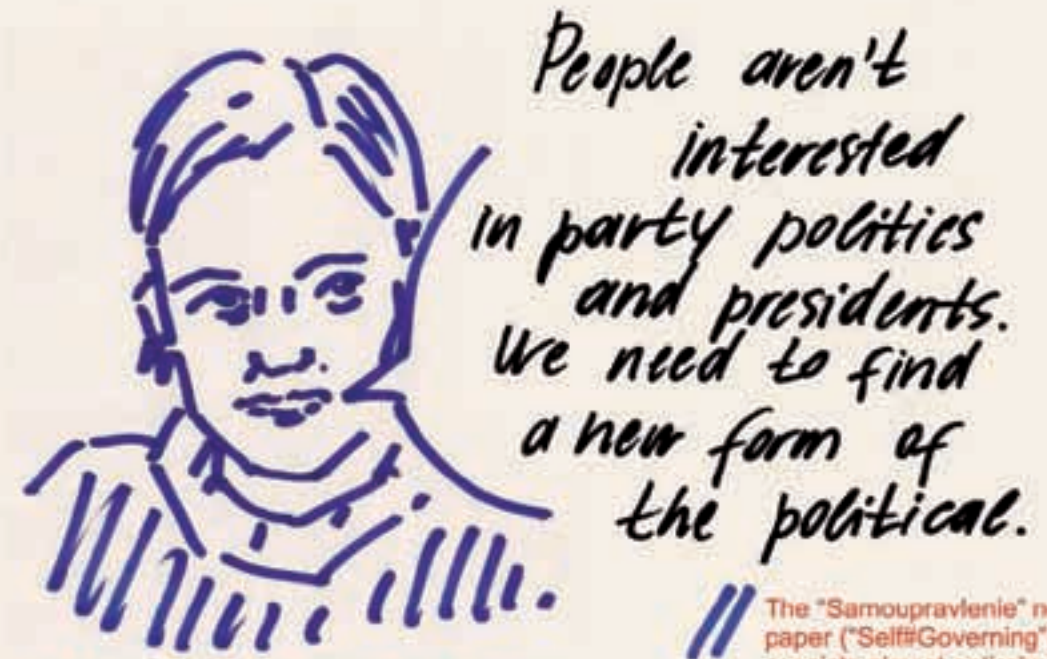 People aren't
interested
in party politics
and presidents.
We need to find
a new form of
the political.
The "Samoupravlenie"
paper ("Self#Governing"